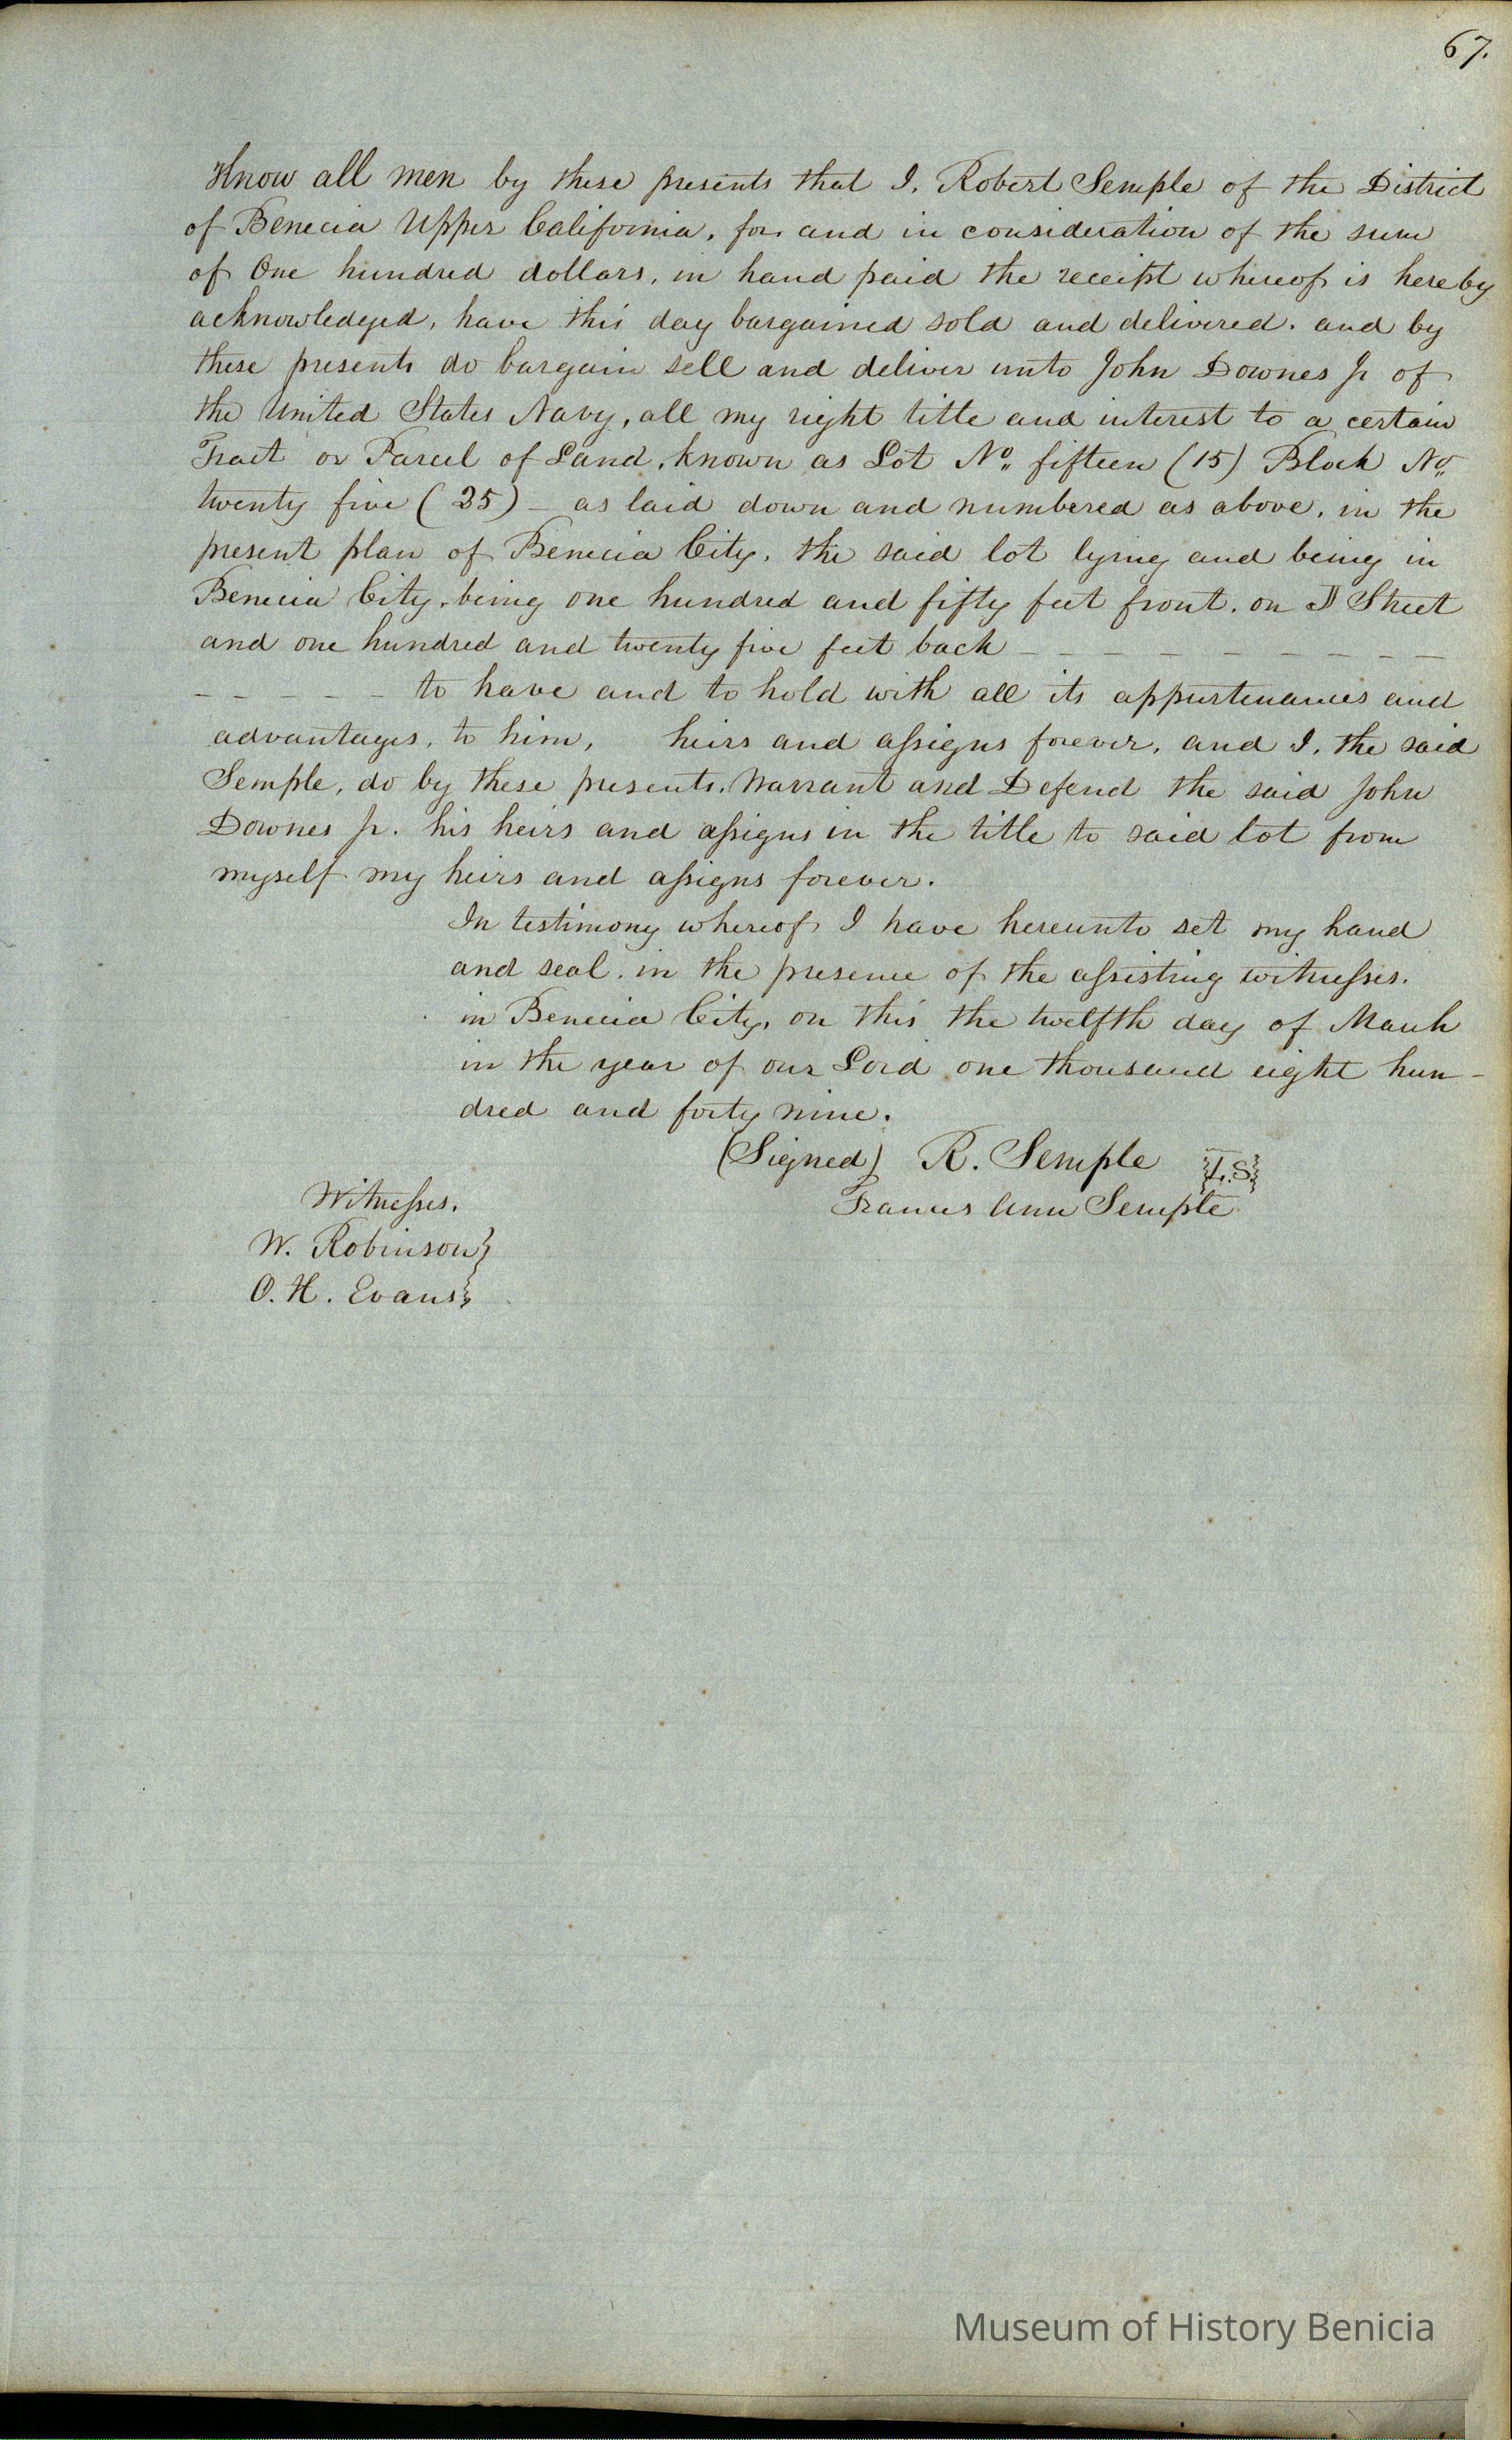 67.
Know all men by these presents that I, Robert Semple of the District
of Benecia Upper California, for and in consideration of the sum
of One hundred dollars, in hand paid the receipt whereof is hereby
acknowledged, have this day bargained sold and delivered. and by
these presents do bargain sell and deliver unto John Downes Jr of
the United States Navy, all my right title and interest to a certain
Tract or Parcel of Land, known as Lot No. fifteen (15) Block No.
twenty five (25) – as laid down and numbered as above, in the
present plan of Benecia City, the said lot lying and being in
Benecia City, being one hundred and fifty feet front, on Street
and one hundred and twenty five feet back – – – – – – – – – –
– – – – – to have and to hold with all its appurtenances and
advantages, to him, heirs and assigns forever, and I, the said
Semple, do by these presents, Warrant and Defend the said John
Downes Jr. his heirs and assigns in the title to said lot from
myself my heirs and assigns forever.
In testimony whereof I have hereunto set my hand
and seal, in the presence of the assisting witnesses.
in Benecia City, on this the twelfth day of March
in the year of our Lord one thousand eight hun-
dred and forty nine.
(Signed) R. Semple L.S.
Frances Ann Semple
Witnesses.
W. Robinson
O. H. Evans
Museum of History Benicia